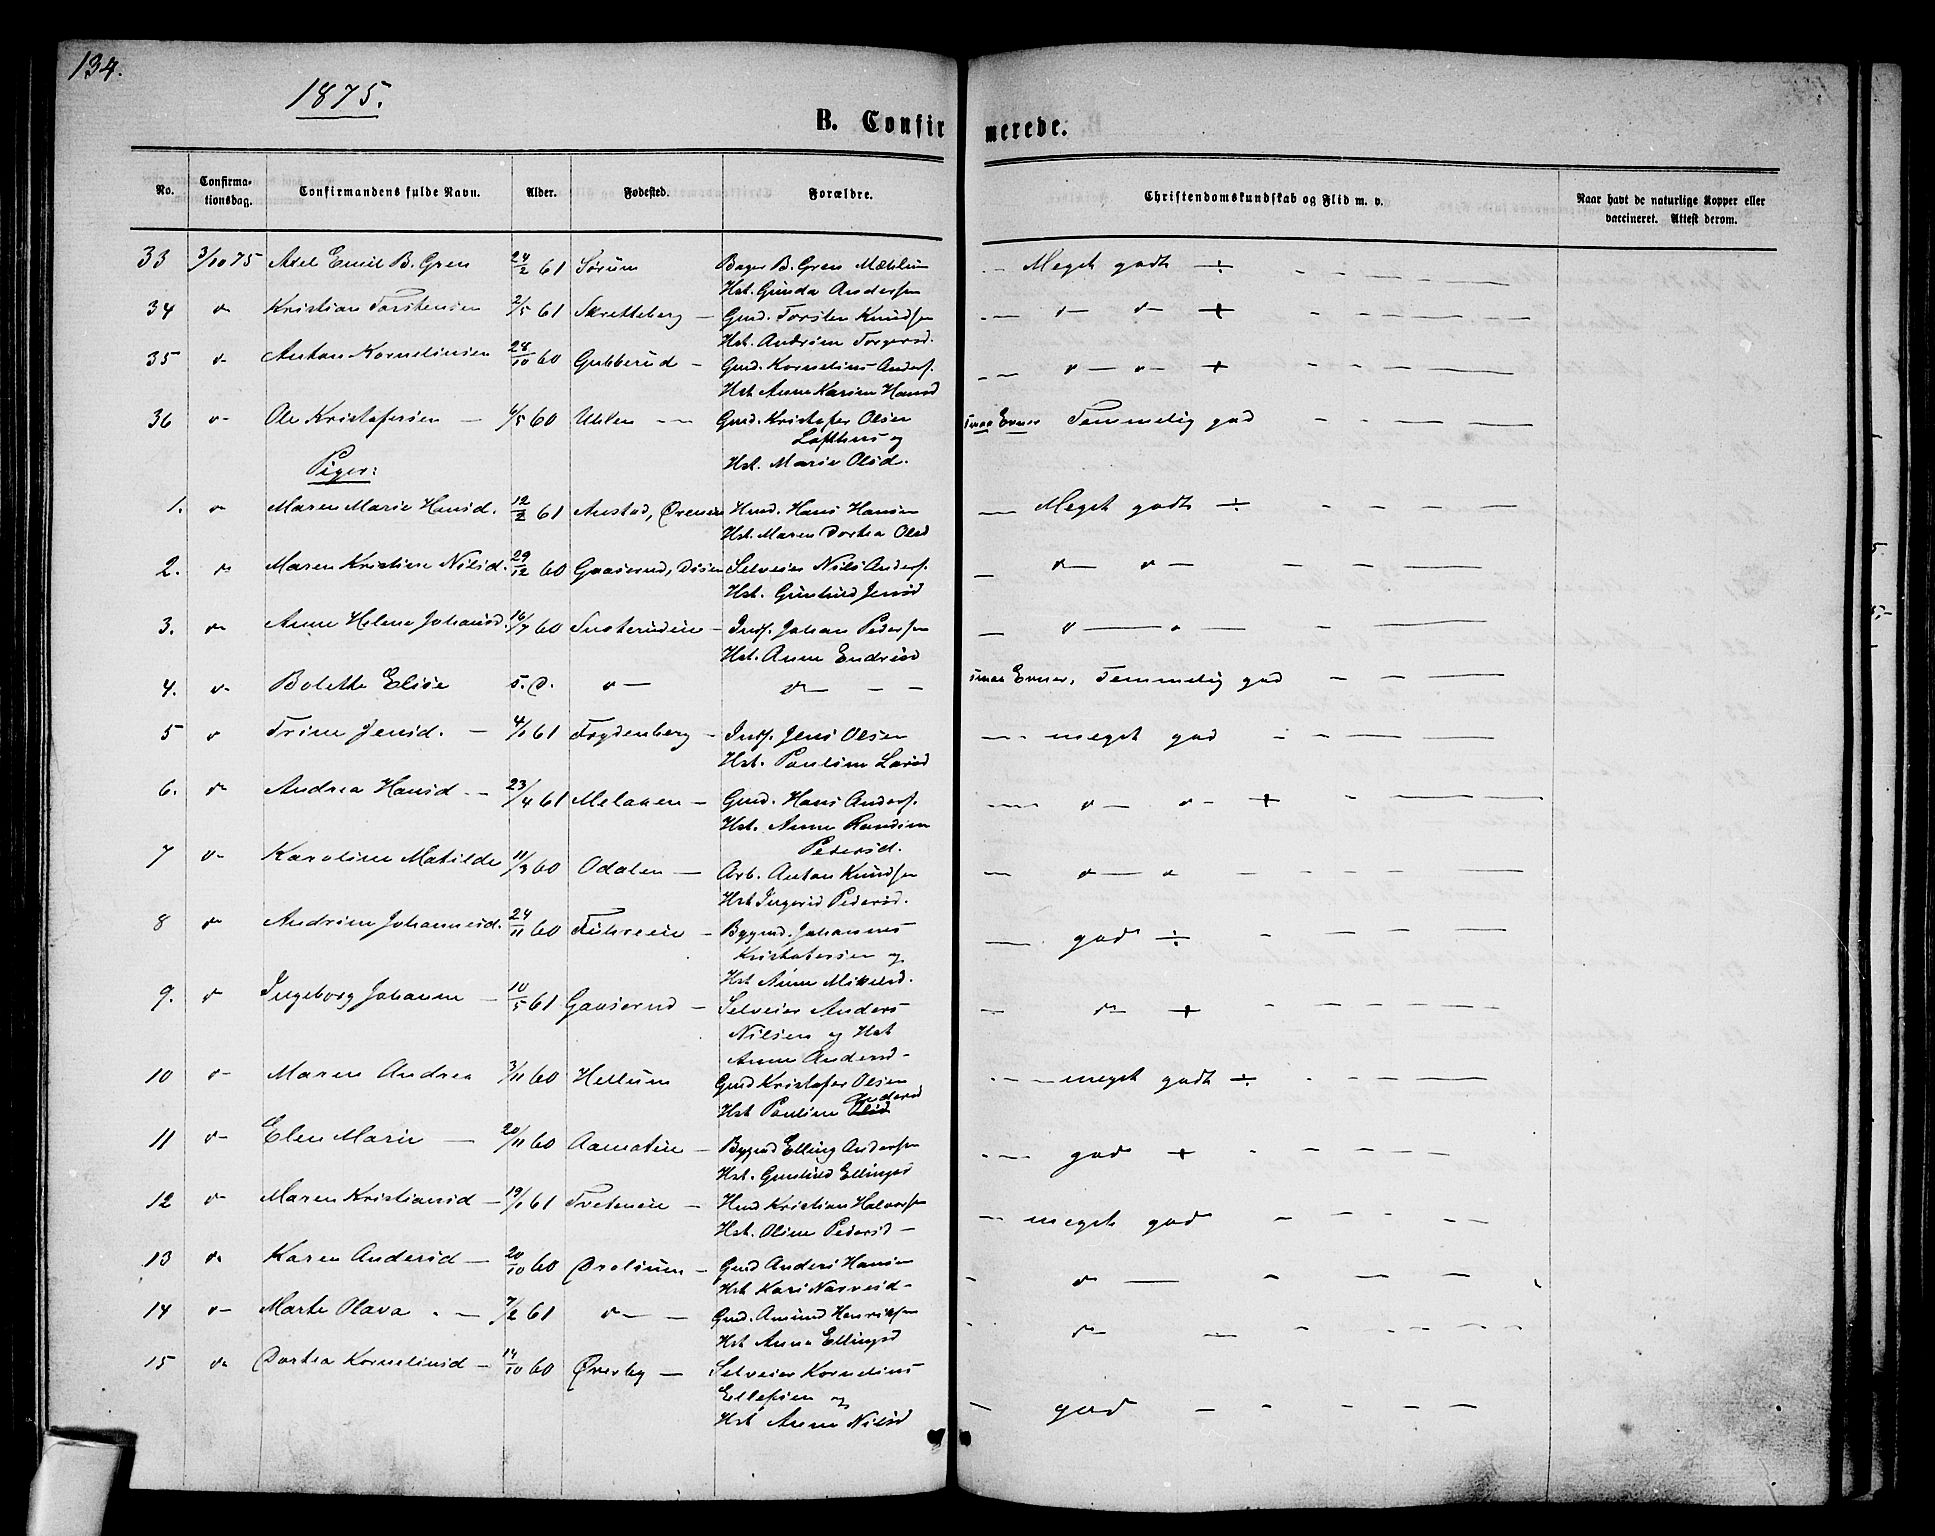 134.
1875.
B. Confirmerede.
No. Confirmationsdag. Confirmandens fulde Navn. Alder. Fødested. Forældre. Christendomskundskab og Flid m. v. Naar havt de naturlige Kopper eller vaccineret. Attest derom.
33 3/10 75 Axel Emil B. Gren 24/2 61 Sørum Bager B. Gren Mæhlum — Meget godt ÷ - — — —
Hst. Gunda Andersen
34 v— Kristian Torstensen 2/5 61 Skretteberg — Gmd. Torsten Knudsen — v— v— +
Hst. Andrine Torgersd.
35 v— Anton Kornelinsen 28/10 60 Gubberud — Gmd. Kornelius Anders. — v— v— +
Hst. Anne Karine Hansd
36 v— Ole Kristofersen — 6/5 60 Uhlen — Gmd. Kristofer Olsen smaa Evner Temmelig god
Lofthus og
Hst. Marie Olsd.
Piger:
1. v— Maren Marie Hansd. 12/2 61 Anstad, Hmd. Hans Hansen — Meget godt ÷
Hst. Maren Dortea Olsd
2. v— Maren Kristine Nilsd. 29/12 60 Gaaserud, Selveier Nils Anders. — v— v—
Hst. Gunhild Jensd
3. v— Anne Helene Johansd. 16/7 60 Inds. Johan Pedersen — v—
Hst. Anne Endresd
4. v— Bolette Elise s. D. v— v— — — smaa Evner. Temmelig god
5 v Trine Jensd. — 4/1 61 Frydenberg — Inds. Jens Olsen — meget god
Hst. Pauline Larsd
6. v— Andrea Hansd — 23/4 61 Melaaen — Gmd. Hans Anders. — v— v— +
Hst. Anne Randine
Pedersd.
7 v— Karoline Matilde 11/3 60 Odalen — Arb. Anton Knudsen — v— v
Hst Ingerid Pedersd.
8 v— Andrine Johannesd. 24/11 60 Bygmd. Johannes — god ÷
Kristofersen og
Hst Anne Mikelsd.
9. v— Ingeborg Johanne — 10/5 61 Gaaserud — Selveier Anders — v— +
Nilsen og Hst
Anne Andersd —
10 v— Maren Andrea 3/11 60 Hellum Gmd Kristofer Olsen — meget godt ÷
Hst Pauline Olsd Andersd
11 v— Elen Marie — 20/11 60 Bygmd Elling Andersen — god +
Hst. Gunhild Ellingsd
12 v— Maren Kristiansd — 19/1 61 Tveteneie — Hmd Kristian Halvorsen — meget god
Hst. Oline Pedersd —
13 v— Karen Andersd — 20/10 60 Gmd Anders Hansen - v—
Hst Kari Narvesd —
14 v— Marte Olava . — 7/2 61 v— — Gmd. Amund Henriksen - v—
Hst Anne Ellingsd
15 v— Dortea Kornelinsd — 14/10 60 Øverby — Selveier Kornelius — god
Ellefsen og
Hst Anne Nilsd